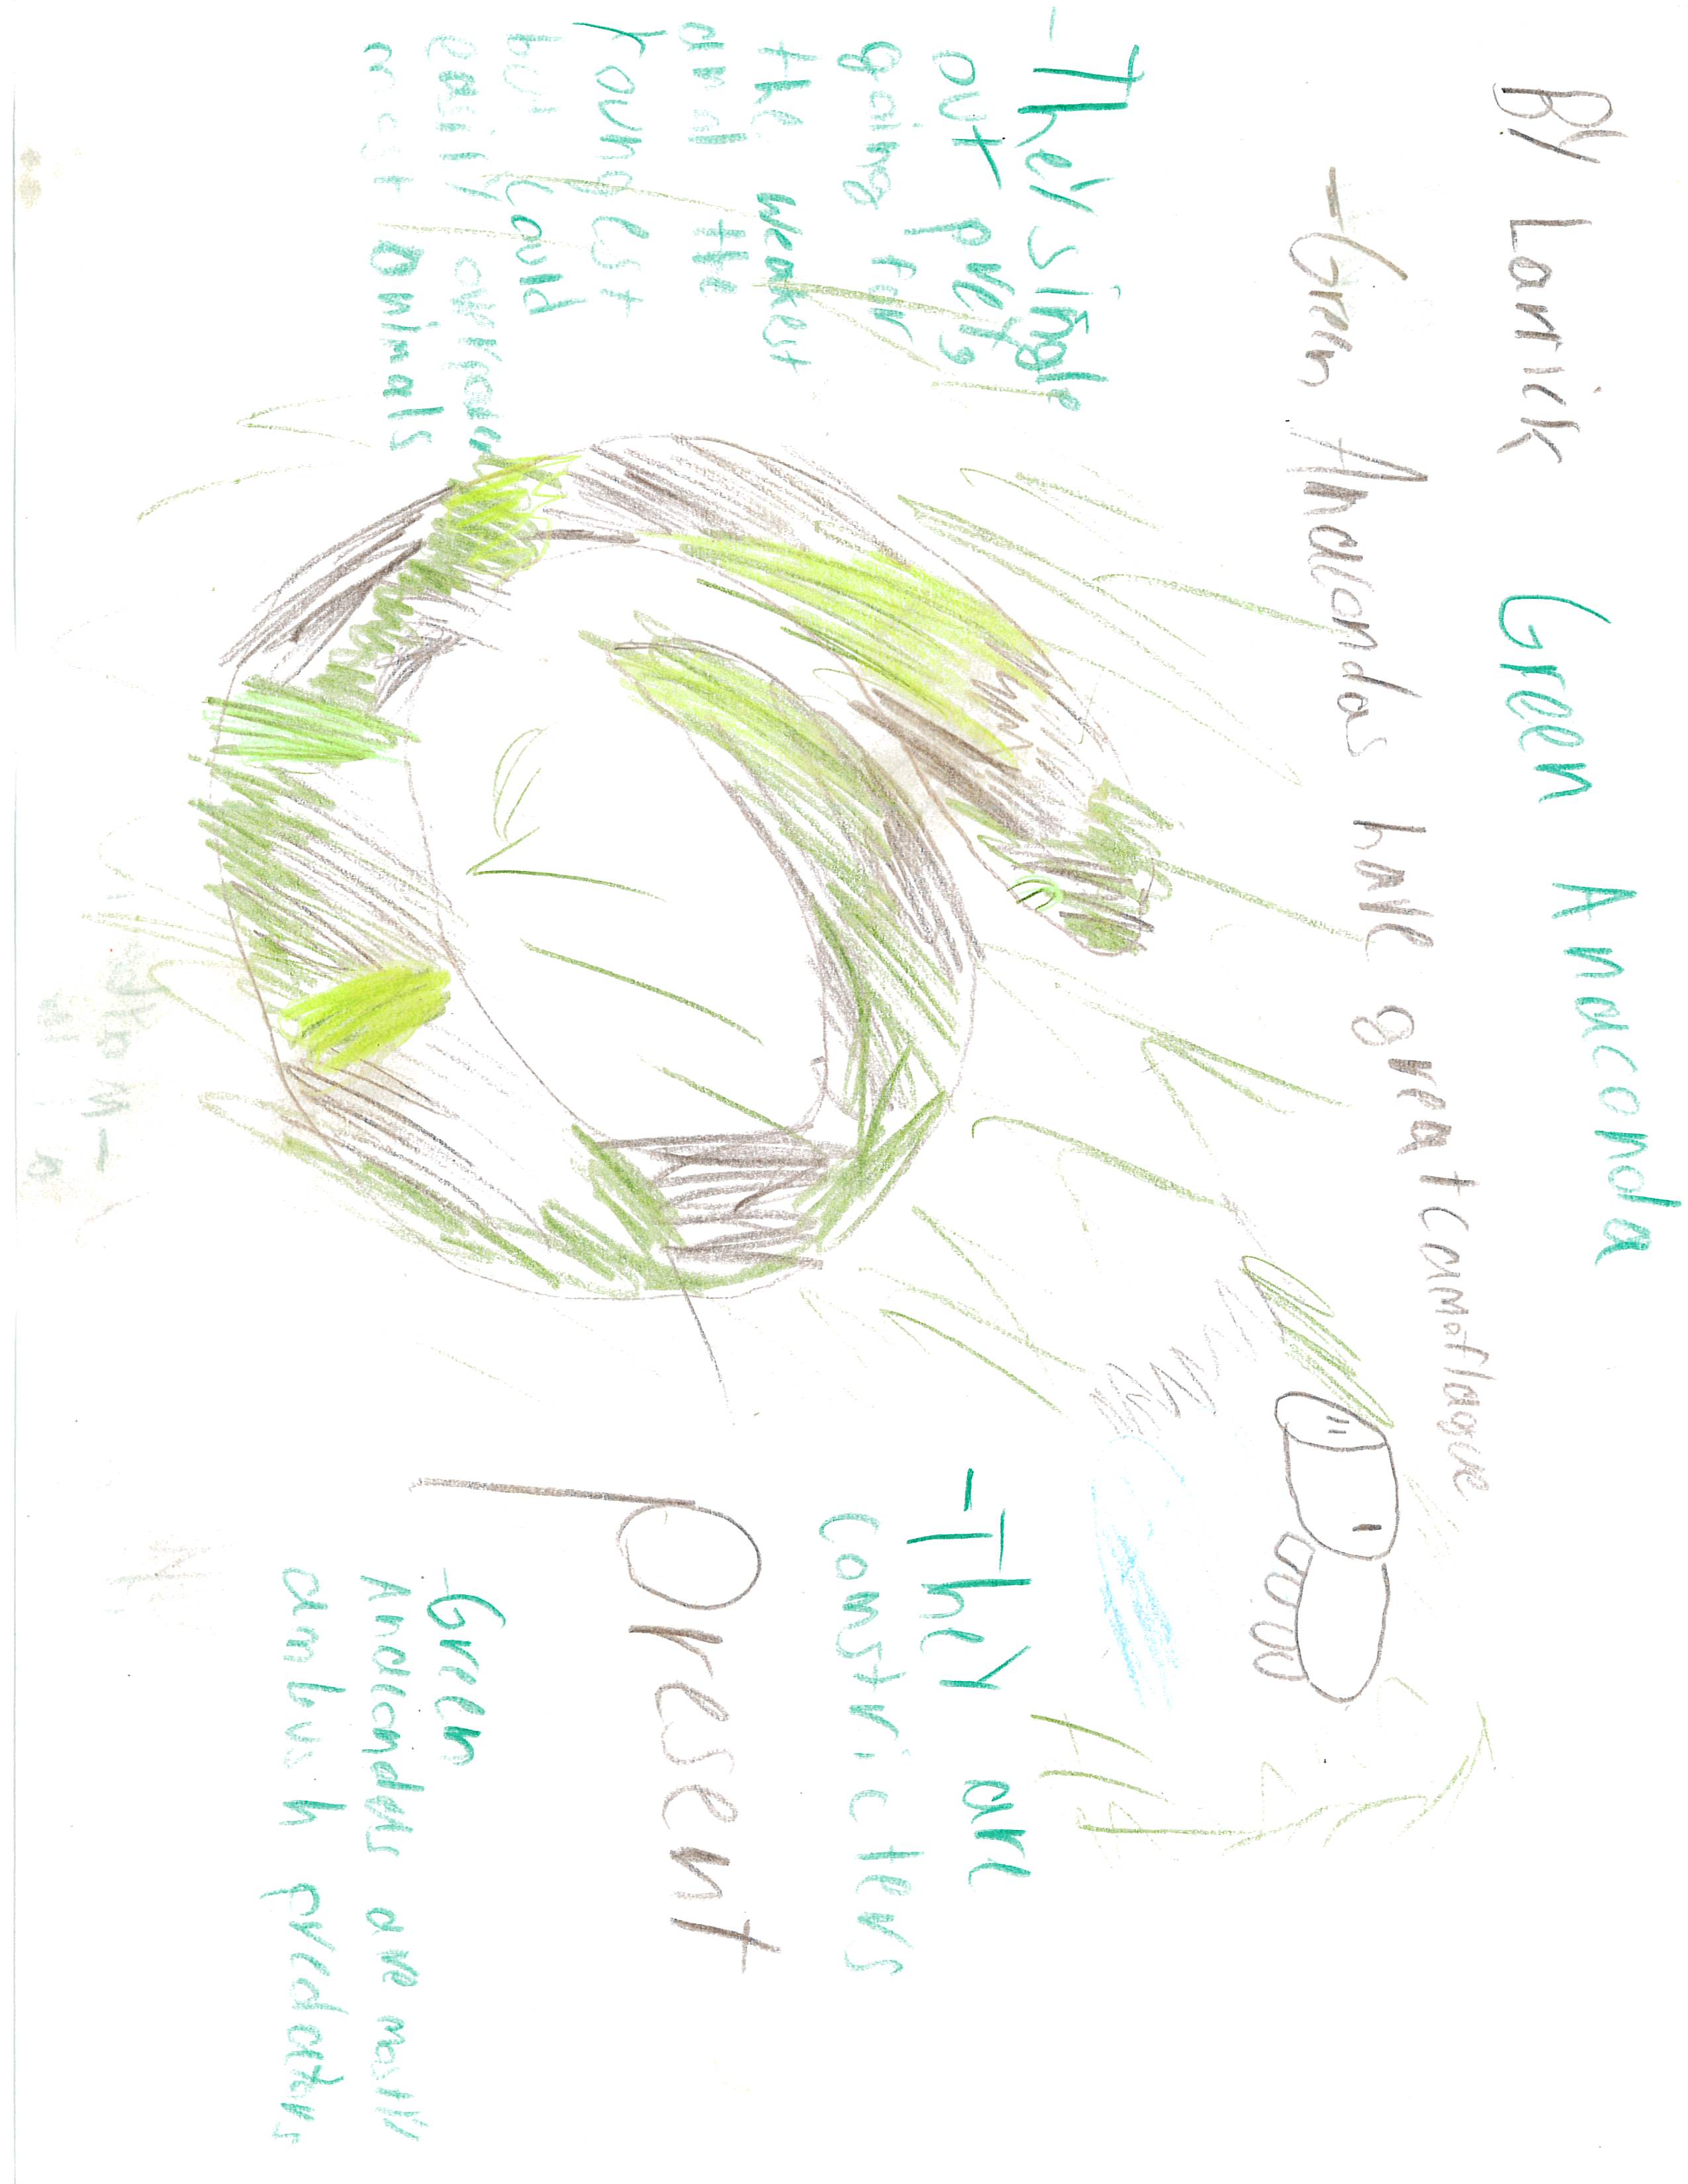 BY Larrick Green Anaconda
-Green Anacondas have great camoflague
-TheY single
out preys
going for
the weakest
and the
Youngest
but could
easily overpower
most animals
-TheY are
constricters
Present
-Green
Anacondas are mostlY
ambush predators